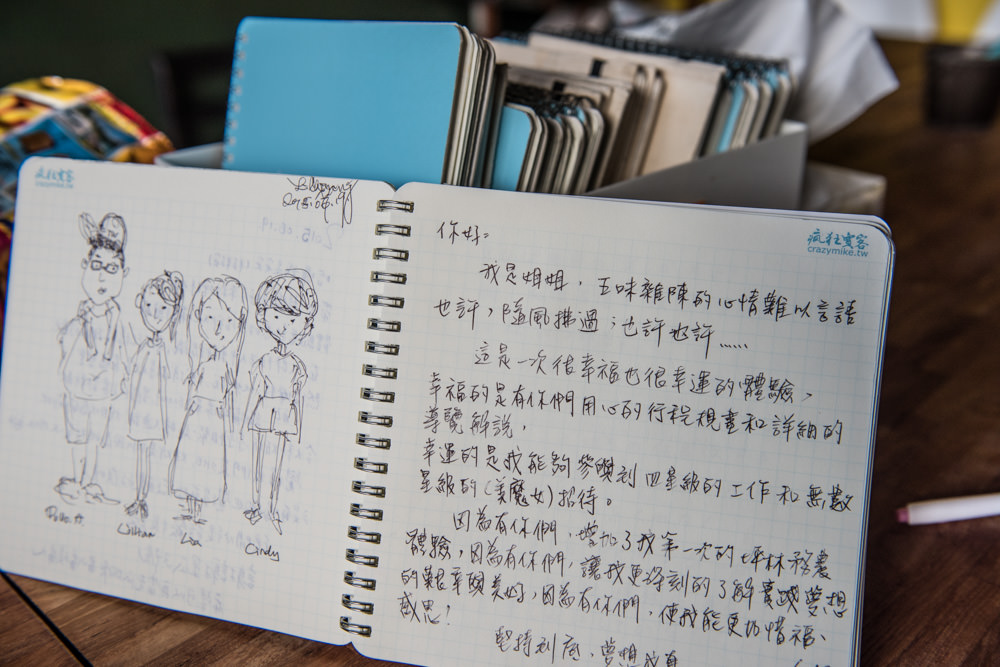 瘋狂賣客
crazymike.tw
2015.08.19
Lillian
Lisa
Cindy
瘋狂賣客
crazymike.tw
你好:
我是姐姐,五味雜陳的心情難以言語
也許,隨風拂過;也許也許……
這是一次很幸福也很幸運的體驗,
幸福的是有你們用心的行程規畫和詳細的
導覽解說,
幸運的是我能夠參與到四星級的工作和無數
星級的(美魔女)招待。
因為有你們,增加了我第一次的坪林務農
體驗,因為有你們,讓我更深刻的了解實踐夢想
的艱辛與美好,因為有你們,使我能更加惜福、
感恩!
堅持到底,夢想成真